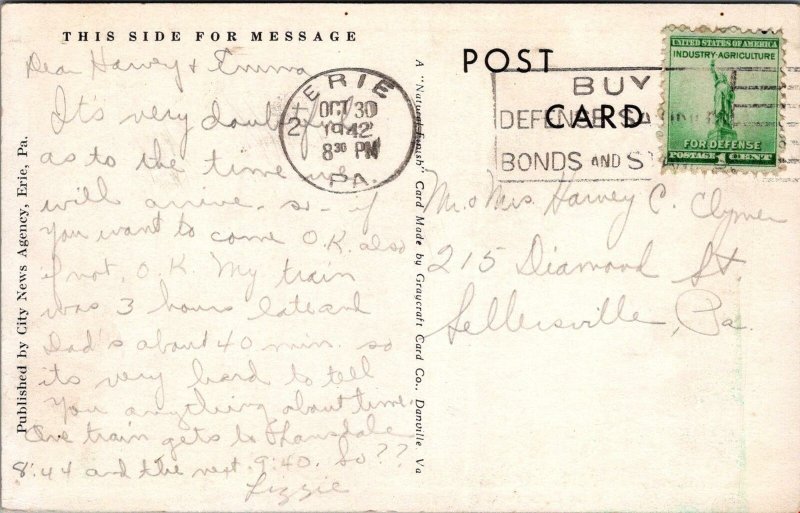 THIS SIDE FOR MESSAGE
Dear Harvey & Emma
It's very doubtful
as to the time we
will arrive. so - if
you want to come O.K. also
if not, O.K. My train
was 3 hours late and
Dad's about 40 min. so
its very hard to tell
you anything about time.
One train gets to Lansdale
8:44 and the next 9:40. So??
Lizzie
Published by City News Agency, Erie, Pa.
A "Natural Finish" Card Made by Graycraft Card Co., Danville, Va
POST
CARD
ERIE
OCT 30
1942
8 30 PM
PA.
2
BUY
DEFENSE SA
BONDS AND S
UNITED STATES OF AMERICA
INDUSTRY-AGRICULTURE
FOR DEFENSE
POSTAGE 1 CENT
Mr. & Mrs. Harvey C. Clymer
215 Diamond St.
Sellersville, Pa.